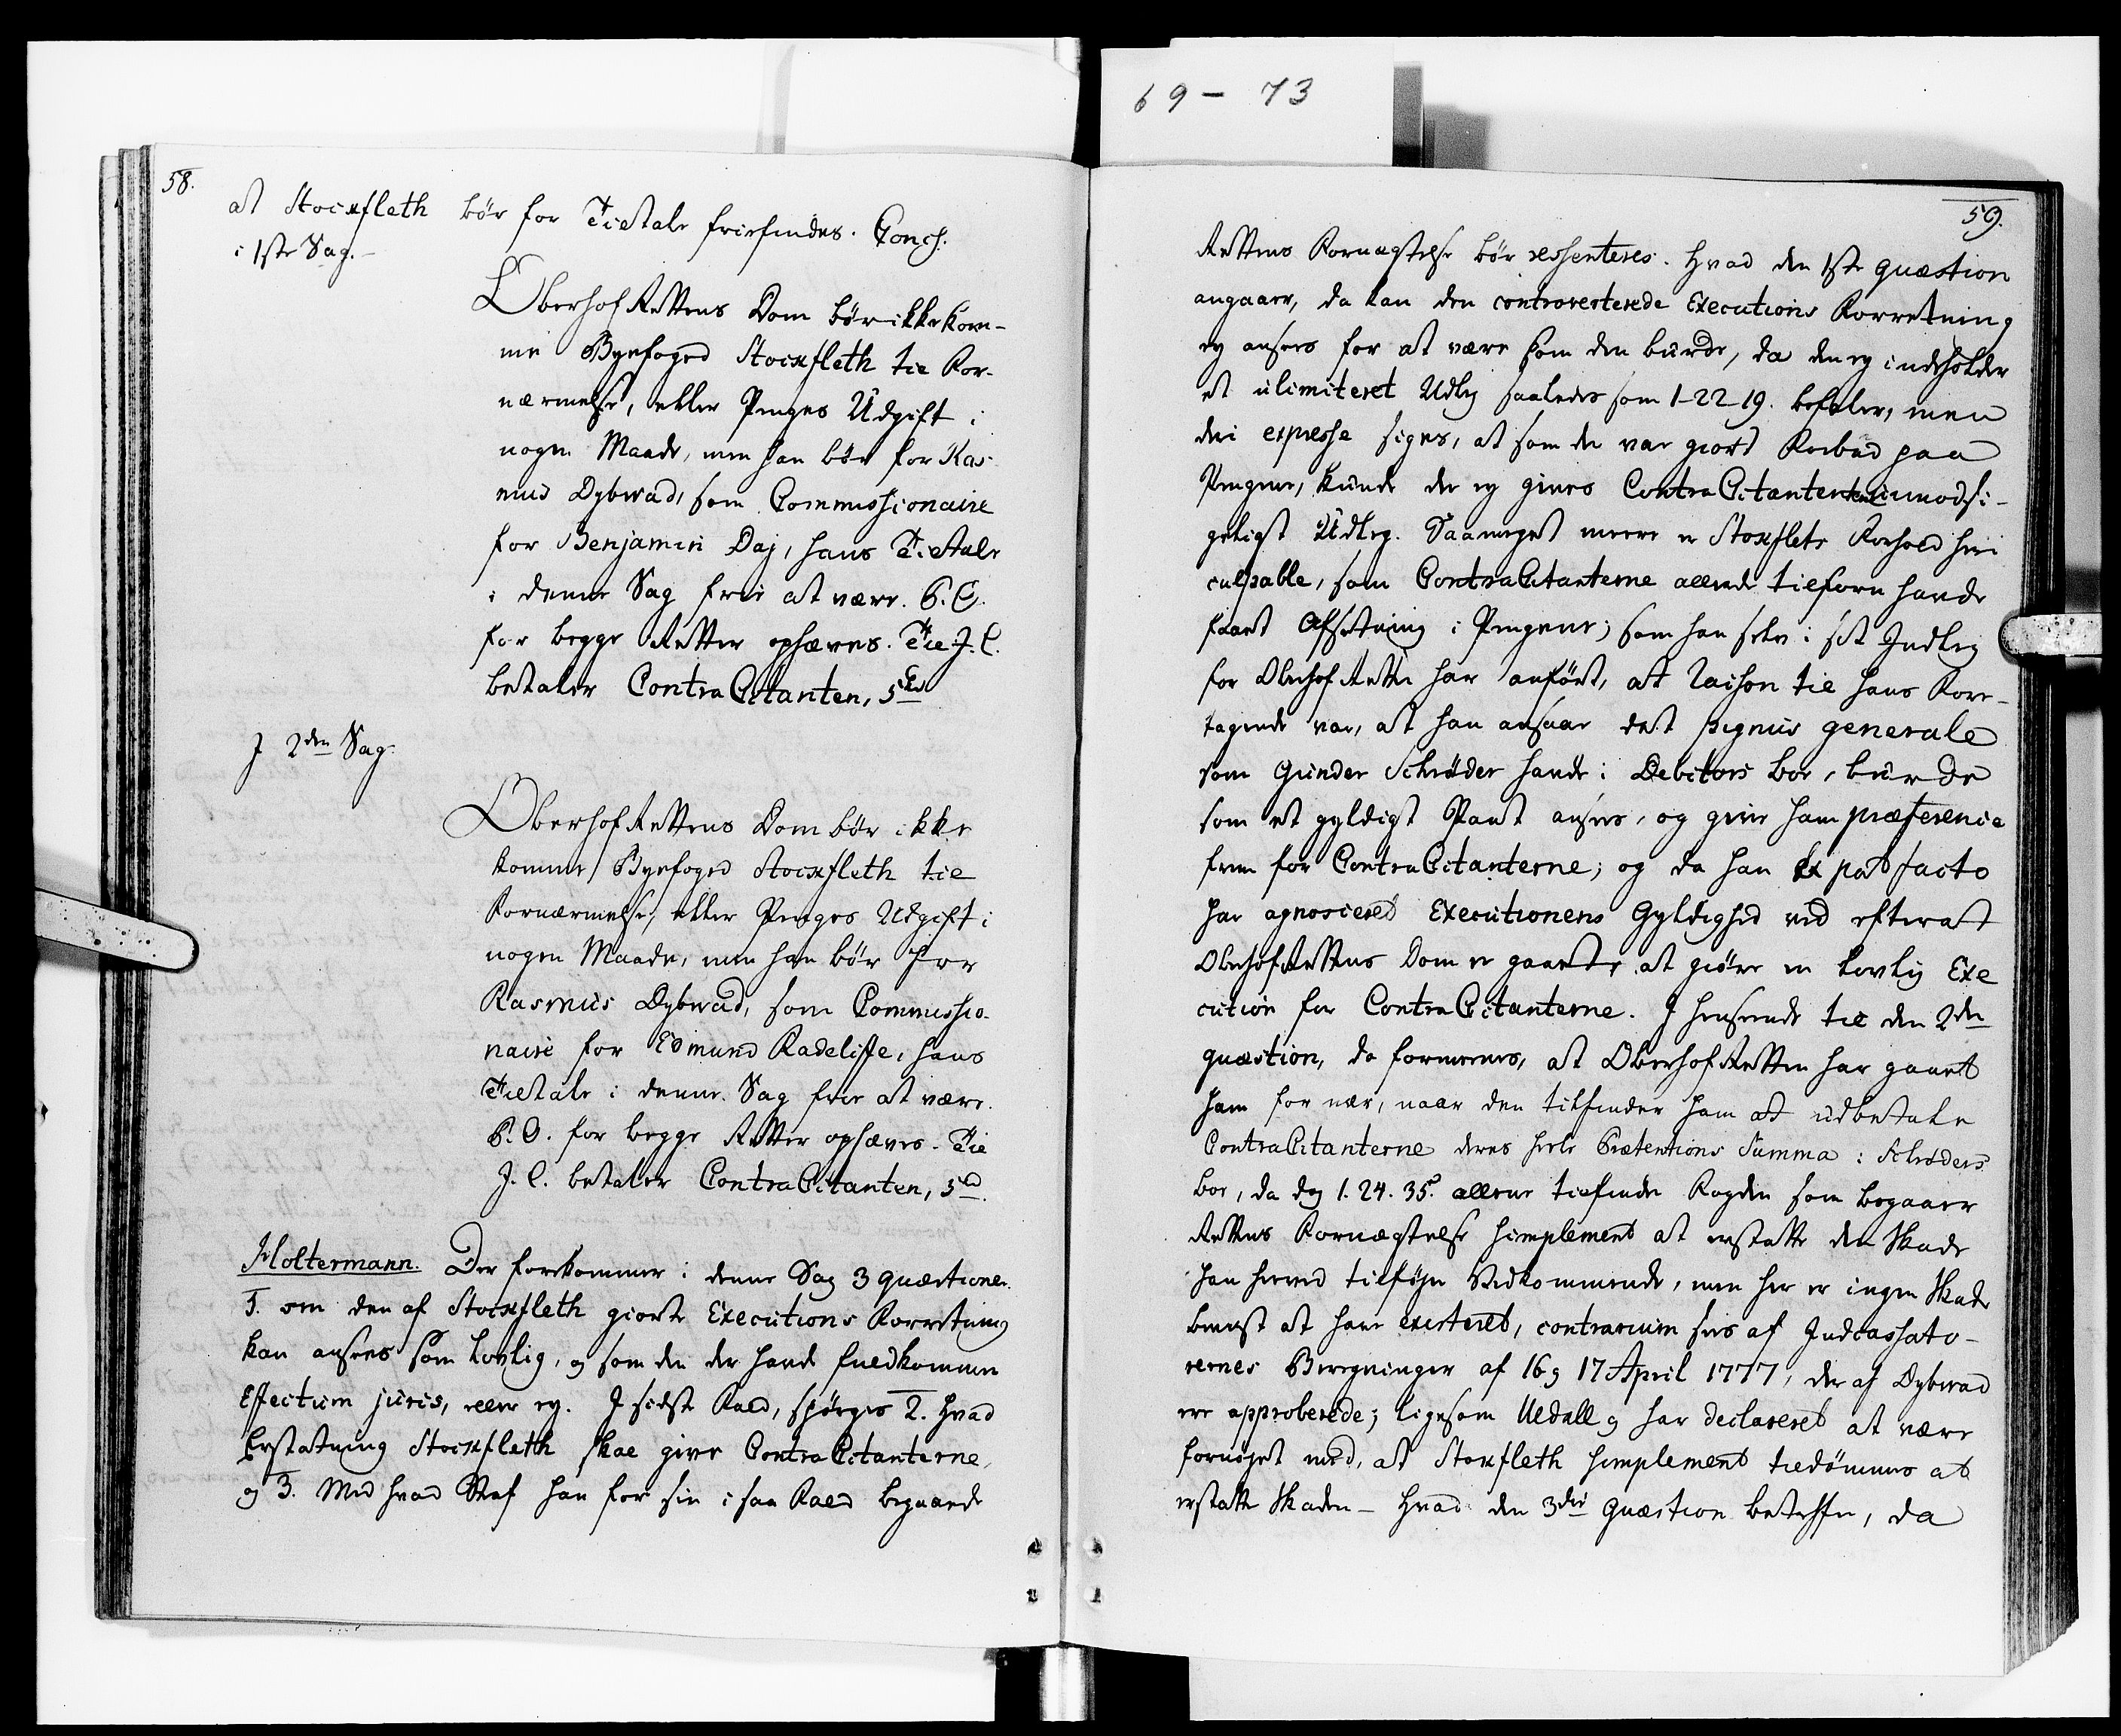 69 - 73
58.
at Stockfleth bør for Tiltale friefindes. Concl.
i 1ste Sag. -
OberhofRettens Dom bør ikke kom-
me Byefoged Stockfleth til For-
nærmelse, eller Penges Udgift i
nogen Maade, men han bør for Ras-
mus Dybwad, som Commissionaire
for Benjamin Daj, hans Tiltale
i denne Sag frie at være. P. O.
for begge Retter ophæves. Til J. C.
betaler ContraCitanten, 5
J 2den Sag.
OberhofRettens Dom bør ikke
komme Byefoged Stockfleth til
Fornærmelse, eller Penges Udgift i
nogen Maade, men han bør for
Rasmus Dybwad, som Commissio-
naire for Edmund Radeliffe, hans
Tiltale i denne Sag frie at være.
P. O. for begge Retter ophæves. Til
J. C. betaler ContraCitanten, 5
Holtermann. Der forekommer i denne Sag 3 quæstioner.
1. om den af Stockfleth giorte Executions Forretning
kan ansees som Lovlig, og som den der havde fuldkommen
Effectum juris, eller ej. I sidste Fald, spørges 2. Hvad
Erstatning Stockfleth skal give ContraCitanterne,
og 3. Med hvad Straf han for sin i saa Fald begaaede
59.
Rettens Fornægtelse bør ressenteres. Hvad den 1ste quæstion
angaaer, da kan den controverterede Executions Forretning
ej ansees for at være som den burde, da den ej indeholder
et ulimiteret Udlæg saaledes som 1-22-19. befaler, men
deri expresse siges, at som der var giort Forbud paa
Pengene, kunde der ej gives ContraCitanterne uimodsi-
geligt Udlæg. Saameget meere er Stoxflets Forhold heri
culpable, som ContraCitanterne allerede tilforn havde
faaet Afsetning i Pengene; som han selv i sit Indlæg
for OberhofRetten har anført, at raison til hans Fore-
tagende var, at han ansaae det pignus generale
som Gunder Schrøder havde i Debitors Boe, burde
som et gyldigt Pant ansees, og give ham præference
frem for ContraCitanterne; og da han ex post facto
har agnosceret Executionens Gyldighed ved efterat
OberhofRettens Dom er gaaet, at giøre en Lovlig Exe
cution for ContraCitanterne. I henseende til den 2den
quæstion, da formeenes, at OberhofRetten har gaaet
ham for nær, naar den tilfinder ham at udbetale
ContraCitanterne deres heele Prætentions Summa i Schrøders
Boe, da dog 1. 24. 35. allene tilfinder Fogden som begaaer
Rettens Fornægtelse simplement at erstatte den Skade
han herved tilføjer Vedkommende, men her er ingen Skade
beviist at have existeret, contrarium sees af Indcassato-
rernes Beregninger af 16 og 17 April 1777, der af Dybwad
ere approberede; ligesom Uldall og har declareret at være
fornøjet med, at Stoxfleth simplement tildømmes at
erstatte Skaden - Hvad den 3die Quæstion betreffer, da